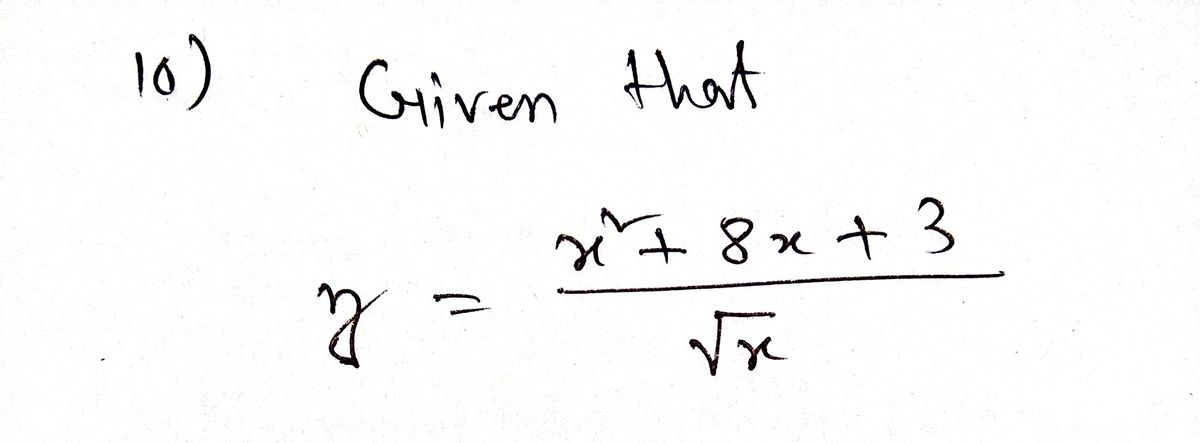 10) Given that
y = x² + 8x + 3 / √x